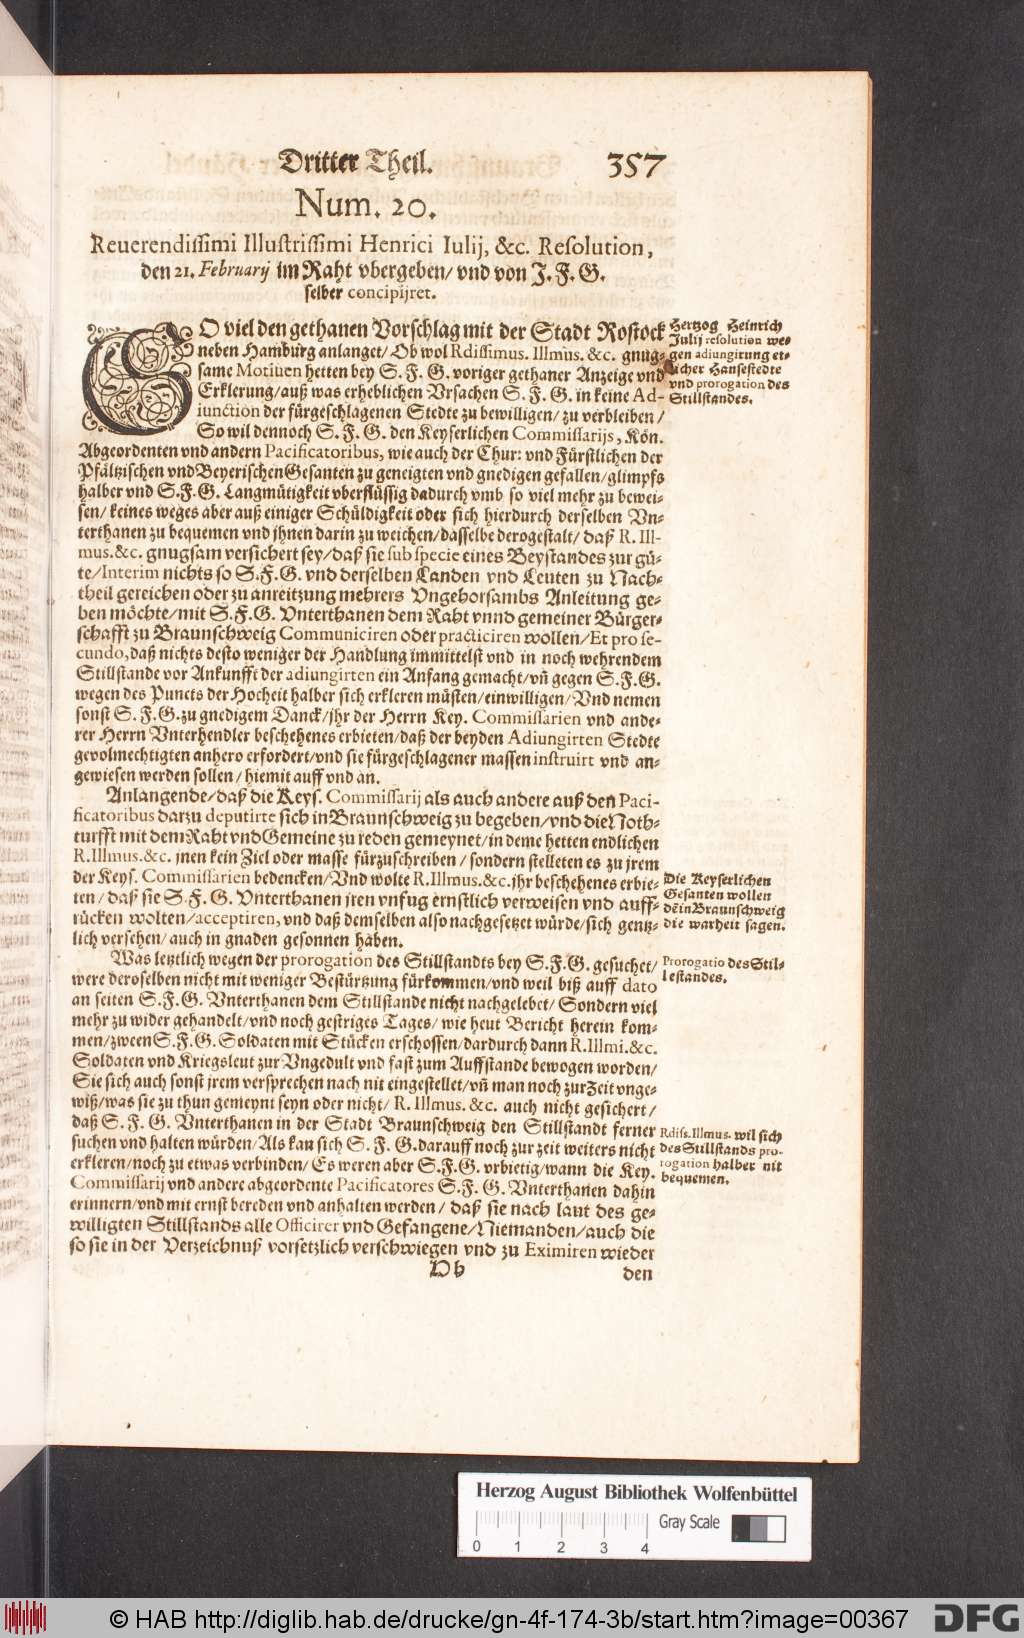 Dritter Theil. 357
Num. 20.
Reuerendissimi Illustrissimi Henrici Iulij, &c. Resolution,
den 21. Februarij im Raht vbergeben/ vnd von J. F. G.
selber concipijret.
SO viel den gethanen Vorschlag mit der Stadt Rostock
neben Hamburg anlanget/ Ob wol Rdissimus. Illmus. &c. gnug-
same Motiuen hetten bey S. F. G. voriger gethaner Anzeige vnd
Erklerung/ auß was erheblichen Vrsachen S. F. G. in keine Ad-
iunction der fürgeschlagenen Stedte zu bewilligen/ zu verbleiben/
So wil dennoch S. F. G. den Keyserlichen Commissarijs, Kön.
Abgeordenten vnd andern Pacificatoribus, wie auch der Chur: vnd Fürstlichen der
Pfältzischen vnd Beyerischen Gesanten zu geneigten vnd gnedigen gefallen/ glimpfs
halber vnd S. F. G. Langmütigkeit vberflüssig dadurch vmb so viel mehr zu bewei-
sen/ keines weges aber auß einiger Schüldigkeit oder sich hierdurch derselben Vn-
terthanen zu bequemen vnd jhnen darin zu weichen/ dasselbe derogestalt/ daß R. Ill-
mus. &c. gnugsam versichert sey/ daß sie sub specie eines Beystandes zur gü-
te/ Interim nichts so S. F. G. vnd derselben Landen vnd Leuten zu Nach-
theil gereichen oder zu anreitzung mehrers Vngehorsambs Anleitung ge-
ben möchte/ mit S. F. G. Vnterthanen dem Raht vnnd gemeiner Bürger-
schafft zu Braunschweig Communiciren oder practiciren wollen/ Et pro se-
cundo, daß nichts desto weniger der Handlung immittelst vnd in noch wehrendem
Stillstande vor Ankunfft der adiungirten ein Anfang gemacht/ vñ gegen S. F. G.
wegen des Puncts der Hocheit halber sich erkleren müsten/ einwilligen/ Vnd nemen
sonst S. F. G. zu gnedigem Danck/ jhr der Herrn Key. Commissarien vnd ande-
rer Herrn Vnterhendler beschehenes erbieten/ daß der beyden Adiungirten Stedte
gevolmechtigten anhero erfordert/ vnd sie fürgeschlagener massen instruirt vnd an-
gewiesen werden sollen/ hiemit auff vnd an.
Anlangende/ daß die Keys. Commissarij als auch andere auß den Paci-
ficatoribus darzu deputirte sich in Braunschweig zu begeben/ vnd die Noth-
turfft mit dem Raht vnd Gemeine zu reden gemeynet/ in deme hetten endlichen
R. Illmus. &c. jnen kein Ziel oder masse fürzuschreiben/ sondern stelleten es zu jrem
der Keys. Commissarien bedencken/ Vnd wolte R. Illmus. &c. jhr beschehenes erbie-
ten/ daß sie S. F. G. Vnterthanen jren vnfug ernstlich verweisen vnd auff-
rücken wolten/ acceptiren, vnd daß demselben also nachgesetzet würde/ sich gentz-
lich versehen/ auch in gnaden gesonnen haben.
Was letztlich wegen der prorogation des Stillstandts bey S. F. G. gesuchet/
were deroselben nicht mit weniger Bestürtzung fürkommen/ vnd weil biß auff dato
an seiten S. F. G. Vnterthanen dem Stillstande nicht nachgelebet/ Sondern viel
mehr zu wider gehandelt/ vnd noch gestriges Tages/ wie heut Bericht herein kom-
men/ zween S. F. G. Soldaten mit Stücken erschossen/ dardurch dann R. Illmi. &c.
Soldaten vnd Kriegsleut zur Vngedult vnd fast zum Auffstande bewogen worden/
Sie sich auch sonst jrem versprechen nach nit eingestellet/ vñ man noch zur Zeit vnge-
wiß/ was sie zu thun gemeynt seyn oder nicht/ R. Illmus. &c. auch nicht gesichert/
daß S. F. G. Vnterthanen in der Stadt Braunschweig den Stillstandt ferner
suchen vnd halten würden/ Als kan sich S. F. G. darauff noch zur zeit weiters nicht
erkleren/ noch zu etwas verbinden/ Es weren aber S. F. G. vrbietig/ wann die Key.
Commissarij vnd andere abgeordente Pacificatores S. F. G. Vnterthanen dahin
erinnern/ vnd mit ernst bereden vnd anhalten werden/ daß sie nach laut des ge-
willigten Stillstands alle Officirer vnd Gefangene/ Niemanden/ auch die
so sie in der Verzeichnuß vorsetzlich verschwiegen vnd zu Eximiren wieder
Ob den
Hertzog Heinrich
Julij resolution we-
gen adiungirung et-
licher Hansestedte
vnd prorogation des
Stillstandes.
Die Keyserlichen
Gesanten wollen
dẽ in Braunschweig
die warheit sagen.
Prorogatio des Stil-
lestandes.
Rdiss. Illmus. wil sich
des Stillstands pro-
rogation halber nit
bequemen.
Herzog August Bibliothek Wolfenbüttel
Gray Scale
0 1 2 3 4
© HAB http://diglib.hab.de/drucke/gn-4f-174-3b/start.htm?image=00367
DFG